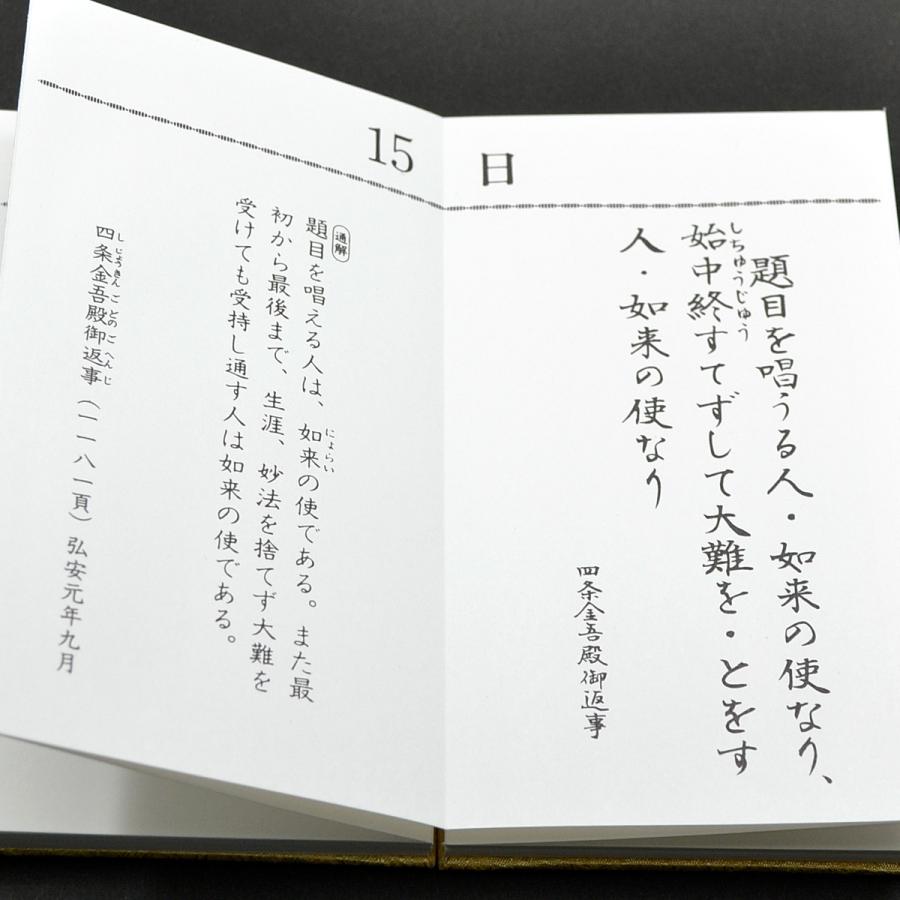 15日
題目を唱うる人・如来の使なり、
始中終すてずして大難を・とをす
しちゅうじゅう
人・如来の使なり
四条金吾殿御返事
通解
題目を唱える人は、如来の使である。また最
にょらい
初から最後まで、生涯、妙法を捨てず大難を
受けても受持し通す人は如来の使である。
四条金吾殿御返事（一一八一頁）弘安元年九月
しじょうきんごどのごへんじ